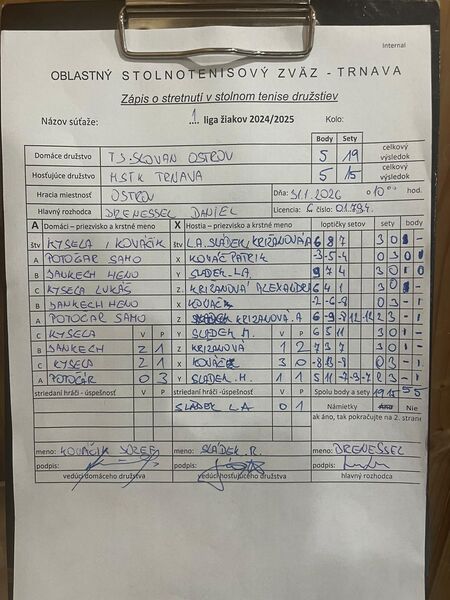 Internal
OBLASTNÝ STOLNOTENISOVÝ ZVÄZ - TRNAVA
Zápis o stretnutí v stolnom tenise družstiev
Názov súťaže: 1. liga žiakov 2024/2025 Kolo:
Body Sety
Domáce družstvo TJ SLOVAN OSTROV 5 19 celkový výsledok
Hosťujúce družstvo MSTK TRNAVA 5 15 celkový výsledok
Hracia miestnosť OSTROV Dňa: 31.1.2026 o 10⁰⁰ hod.
Hlavný rozhodca DRENESSEL DANIEL Licencia: C číslo: 01.794.
A Domáci – priezvisko a krstné meno X Hostia – priezvisko a krstné meno loptičky setov sety body
štv KYSELA, KOVÁČIK štv L.A. SLÁDEK, KRIŽANOVÁ A 6 8 7 3 0 1 -
A POTOČÁR SAMO X KOVÁČ PATRIK -3 -5 -4 0 3 0 1
B DANKECH HENO Y SLÁDEK L.A. 9 7 4 3 0 1 0
C KYSELA LUKÁŠ Z KRIŽANOVÁ ALEXANDRA 6 4 1 3 0 1 -
B DANKECH HENO X KOVÁČ -2 -6 -8 0 3 - 1
A POTOČÁR SAMO Z KRIŽANOVÁ A 2 3 - 1
C KYSELA V P Y SLÁDEK M. V P 6 5 11 3 0 1 -
B DANKECH 2 1 Z KRIŽANOVÁ 1 2 7 3 7 3 0 1 -
C KYSELA 2 1 X KOVÁČ 3 0 0 3 - 1
A POTOČÁR 0 3 Y SLÁDEK M. 1 1 5 11 -7 -9 -7 2 3 - 1
striedaní hráči - úspešnosť striedaní hráči - úspešnosť Spolu body a sety 19 15 5 5
SLÁDEK L.A 0 1 Námietky Áno Nie
ak áno, tak pokračujte na 2. strane
meno: KOVÁČIK JOZEF meno: SLÁDEK R. meno: DRENESSEL
podpis: podpis: podpis:
vedúci domáceho družstva vedúci hosťujúceho družstva hlavný rozhodca